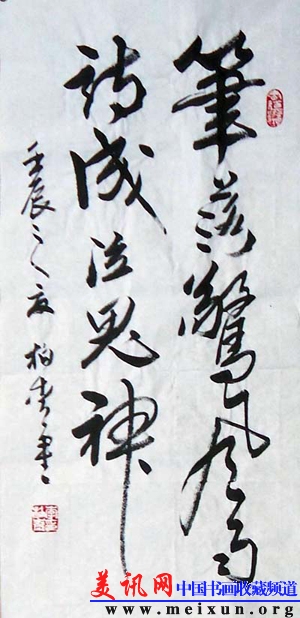 筆落驚風雨
詩成泣鬼神
壬辰之夏
美讯网 中国书画收藏频道
www.meixun.org